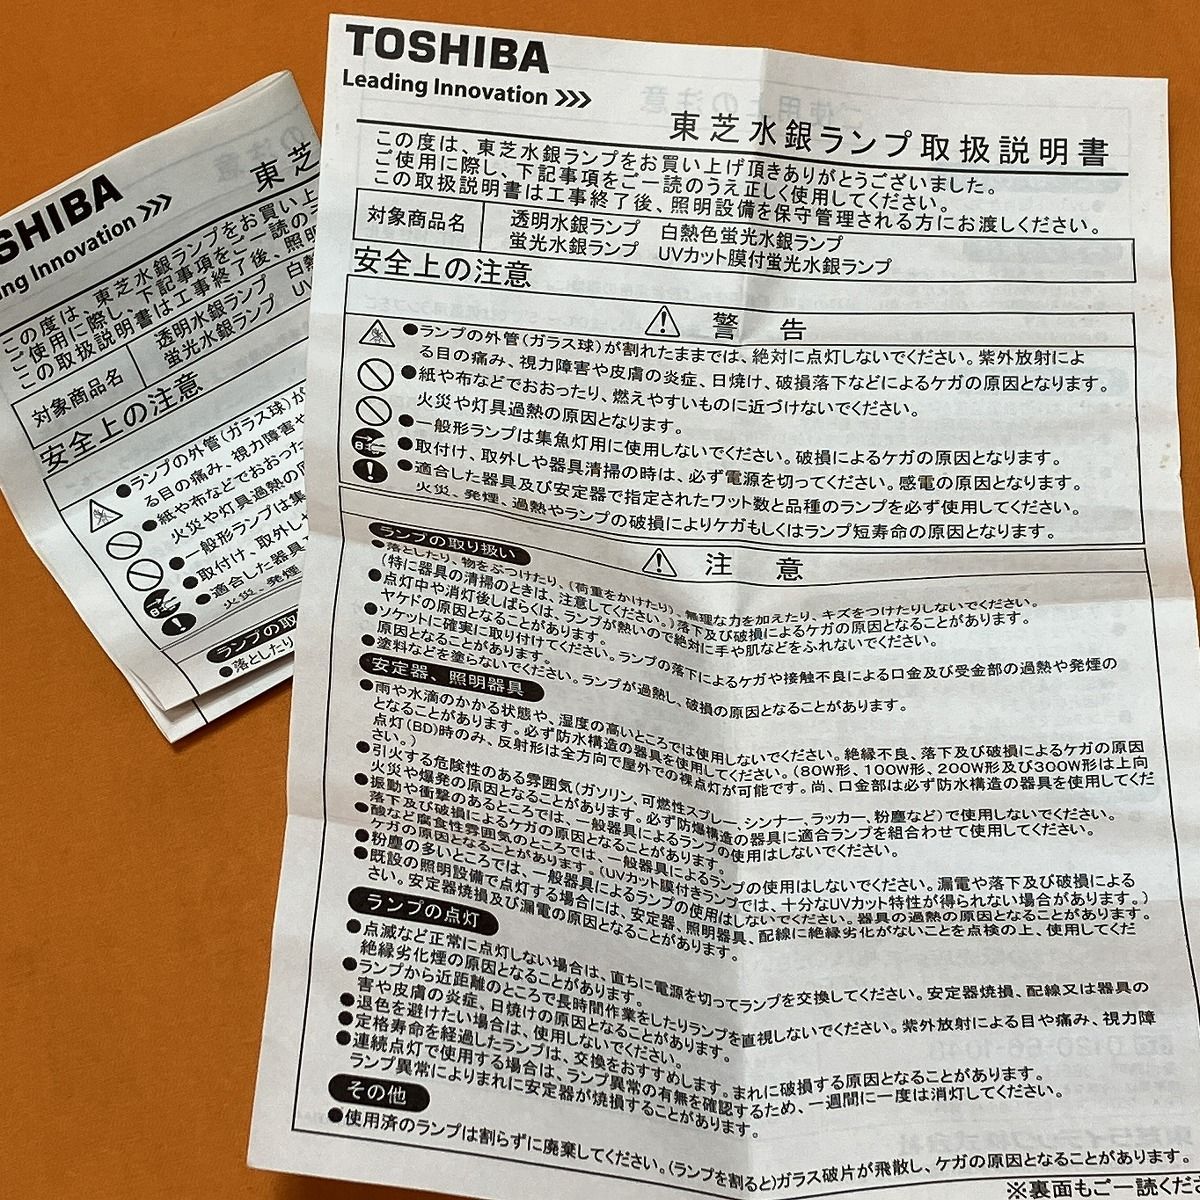 TOSHIBA
Leading Innovation >>>
東芝水銀ランプ取扱説明書
この度は、東芝水銀ランプをお買い上げ頂きありがとうございました。
ご使用に際し、下記事項をご一読のうえ正しく使用してください。
この取扱説明書は工事終了後、照明設備を保守管理される方にお渡しください。
対象商品名 透明水銀ランプ 白熱色蛍光水銀ランプ
蛍光水銀ランプ UVカット膜付蛍光水銀ランプ
安全上の注意
警 告
●ランプの外管(ガラス球)が割れたままでは、絶対に点灯しないでください。紫外放射によ
る目の痛み、視力障害や皮膚の炎症、日焼け、破損落下などによるケガの原因となります。
●紙や布などでおおったり、燃えやすいものに近づけないでください。
火災や灯具過熱の原因となります。
●一般形ランプは集魚灯用に使用しないでください。破損によるケガの原因となります。
●取付け、取外しや器具清掃の時は、必ず電源を切ってください。感電の原因となります。
●適合した器具及び安定器で指定されたワット数と品種のランプを必ず使用してください。
火災、発煙、過熱やランプの破損によりケガもしくはランプ短寿命の原因となります。
注 意
ランプの取り扱い
●落としたり、物をぶつけたり、(荷重をかけたり)、無理な力を加えたり、キズをつけたりしないでください。
(特に器具の清掃のときは、注意してください。)落下及び破損によるケガの原因となります。
●点灯中や消灯後しばらくは、ランプが熱いので絶対に手や肌などをふれないでください。
ヤケドの原因となることがあります。
●ソケットに確実に取り付けてください。ランプの落下によるケガや接触不良による口金及び受金部の過熱や発煙の
原因となることがあります。
●塗料などを塗らないでください。ランプが過熱し、破損の原因となることがあります。
安定器、照明器具
●雨や水滴のかかる状態や、湿度の高いところでは使用しないでください。絶縁不良、落下及び破損によるケガの原因
となることがあります。必ず防水構造の器具を使用してください。(80W形、100W形、200W形及び300W形は上向
点灯(BD)時のみ、反射形は全方向で屋外での裸点灯が可能です。尚、口金部は必ず防水構造の器具を使用してくだ
さい。)
●引火する危険性のある雰囲気(ガソリン、可燃性スプレー、シンナー、ラッカー、粉塵など)で使用しないでください。
火災や爆発の原因となることがあります。必ず防爆構造の器具に適合ランプを組合わせて使用してください。
●振動や衝撃のあるところでは、一般器具によるランプの使用はしないでください。
落下及び破損によるケガの原因となることがあります。
●酸など腐食性雰囲気のところでは、一般器具によるランプの使用はしないでください。漏電や落下及び破損による
ケガの原因となることがあります。(UVカット膜付きランプでは、十分なUVカット特性が得られない場合があります。)
●粉塵の多いところでは、一般器具によるランプの使用はしないでください。器具の過熱の原因となることがあります。
●既設の照明設備で点灯する場合には、安定器、照明器具、配線に絶縁劣化がないことを点検の上、使用してくだ
さい。安定器焼損及び漏電の原因となることがあります。
ランプの点灯
●点滅など正常に点灯しない場合は、直ちに電源を切ってランプを交換してください。安定器焼損、配線又は器具の
絶縁劣化煙の原因となることがあります。
●ランプから近距離のところで長時間作業をしたりランプを直視しないでください。紫外放射による目や痛み、視力障
害や皮膚の炎症、日焼けの原因となることがあります。
●退色を避けたい場合は、使用しないでください。
●定格寿命を経過したランプは、交換をおすすめします。まれに破損する原因となることがあります。
●連続点灯で使用する場合は、ランプ異常の有無を確認するため、一週間に一度は消灯してください。
ランプ異常によりまれに安定器が焼損することがあります。
その他
●使用済のランプは割らずに廃棄してください。(ランプを割ると)ガラス破片が飛散し、ケガの原因となることがあります。
※裏面もご一読くだ
SHIBA
ng Innovation >>>
東芝
この度は、東芝水銀ランプをお買い上
ご使用に際し、下記事項をご一読のう
この取扱説明書は工事終了後、照明
対象商品名 透明水銀ランプ 白熱
蛍光水銀ランプ UV
安全上の注意
●ランプの外管(ガラス球)が
る目の痛み、視力障害や
●紙や布などでおおった
火災や灯具過熱の原
●一般形ランプは集
●取付け、取外しや
●適合した器具
火災、発煙
ランプの取
●落としたり